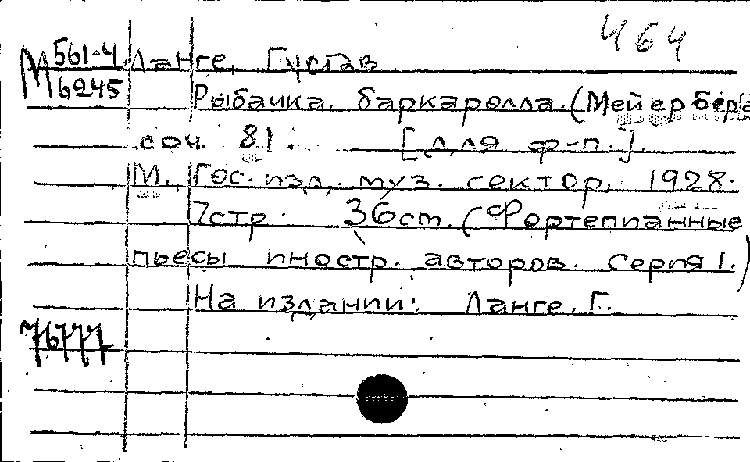 464
М 561-4 Ланге, Густав
6245
Рыбачка. баркаролла. (Мейербере
соч. 81. [для ф-п.].
М., Гос. изд, муз. сектор, 1928.
7стр. 36ст. (Фортепианные
пьесы иностр. авторов. Серия I.)
На издании: Ланге, Г.
76777